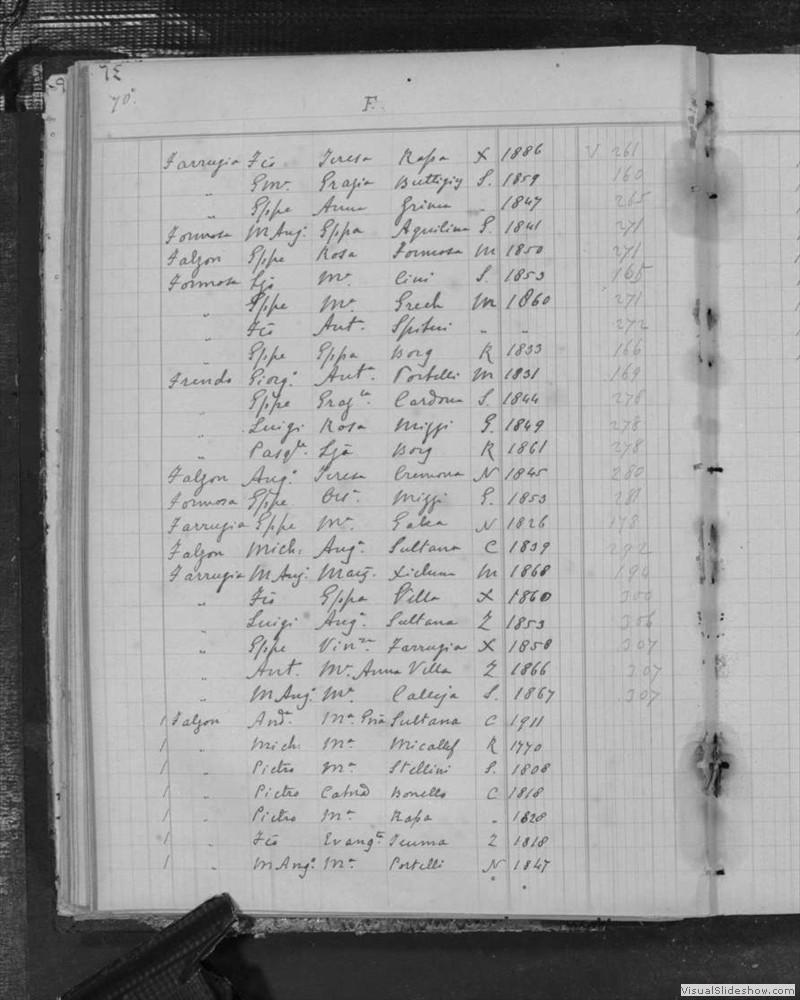 70.
F.
Farrugia Fco Teresa Rapa X 1886 V 261
„ Em. Grazia Buttigig S. 1859 160
„ Gppe Anna Grima „ 1847 265
Formosa M Ang. Gppa Aquilina G. 1841 271
Falzon Gppe Rosa Formosa M 1850 271
Formosa Ljo Ma. Cini S. 1853 165
„ Gppe Ma. Grech M 1860 271
„ Fco Ant. Spiteri „ „ 272
„ Gppe Gppa Borg R 1833 166
Frendo Giorg. Anta. Portelli M 1831 169
„ Gppe Grazla. Cardona S. 1844 276
„ Luigi Rosa Mizzi G. 1849 278
„ Pasqle. Lja Borg R 1861 278
Falzon Ang. Teresa Cremona N 1845 280
Formosa Gppe Mizzi G. 1853 281
Farrugia Gppe Ma. Galea N 1826 178
Falzon Mich. Anga. Sultana C 1839 292
Farrugia M Ang. Marg. Xicluna M 1868 190
„ Fco Gppa Villa X 1860 300
„ Luigi Anga. Sultana Z 1853 306
„ Gppe Vinza. Farrugia X 1858 307
„ Ant. Ma. Anna Villa Z 1866 307
„ M Ang. Ma. Calleja S. 1867 307
1 Falzon Anda. Ma. Gria Sultana C 1911
1 „ Mich. Ma. Micallef R 1770
1 „ Pietro Ma. Stellini S. 1808
1 „ Pietro Catnd Bonello C 1818
1 „ Pietro Ma. Rapa „ 1828
1 „ Fco Evangta. Teuma Z 1818
1 „ M Ang. Ma. Portelli N 1847
VisualSlideshow.com